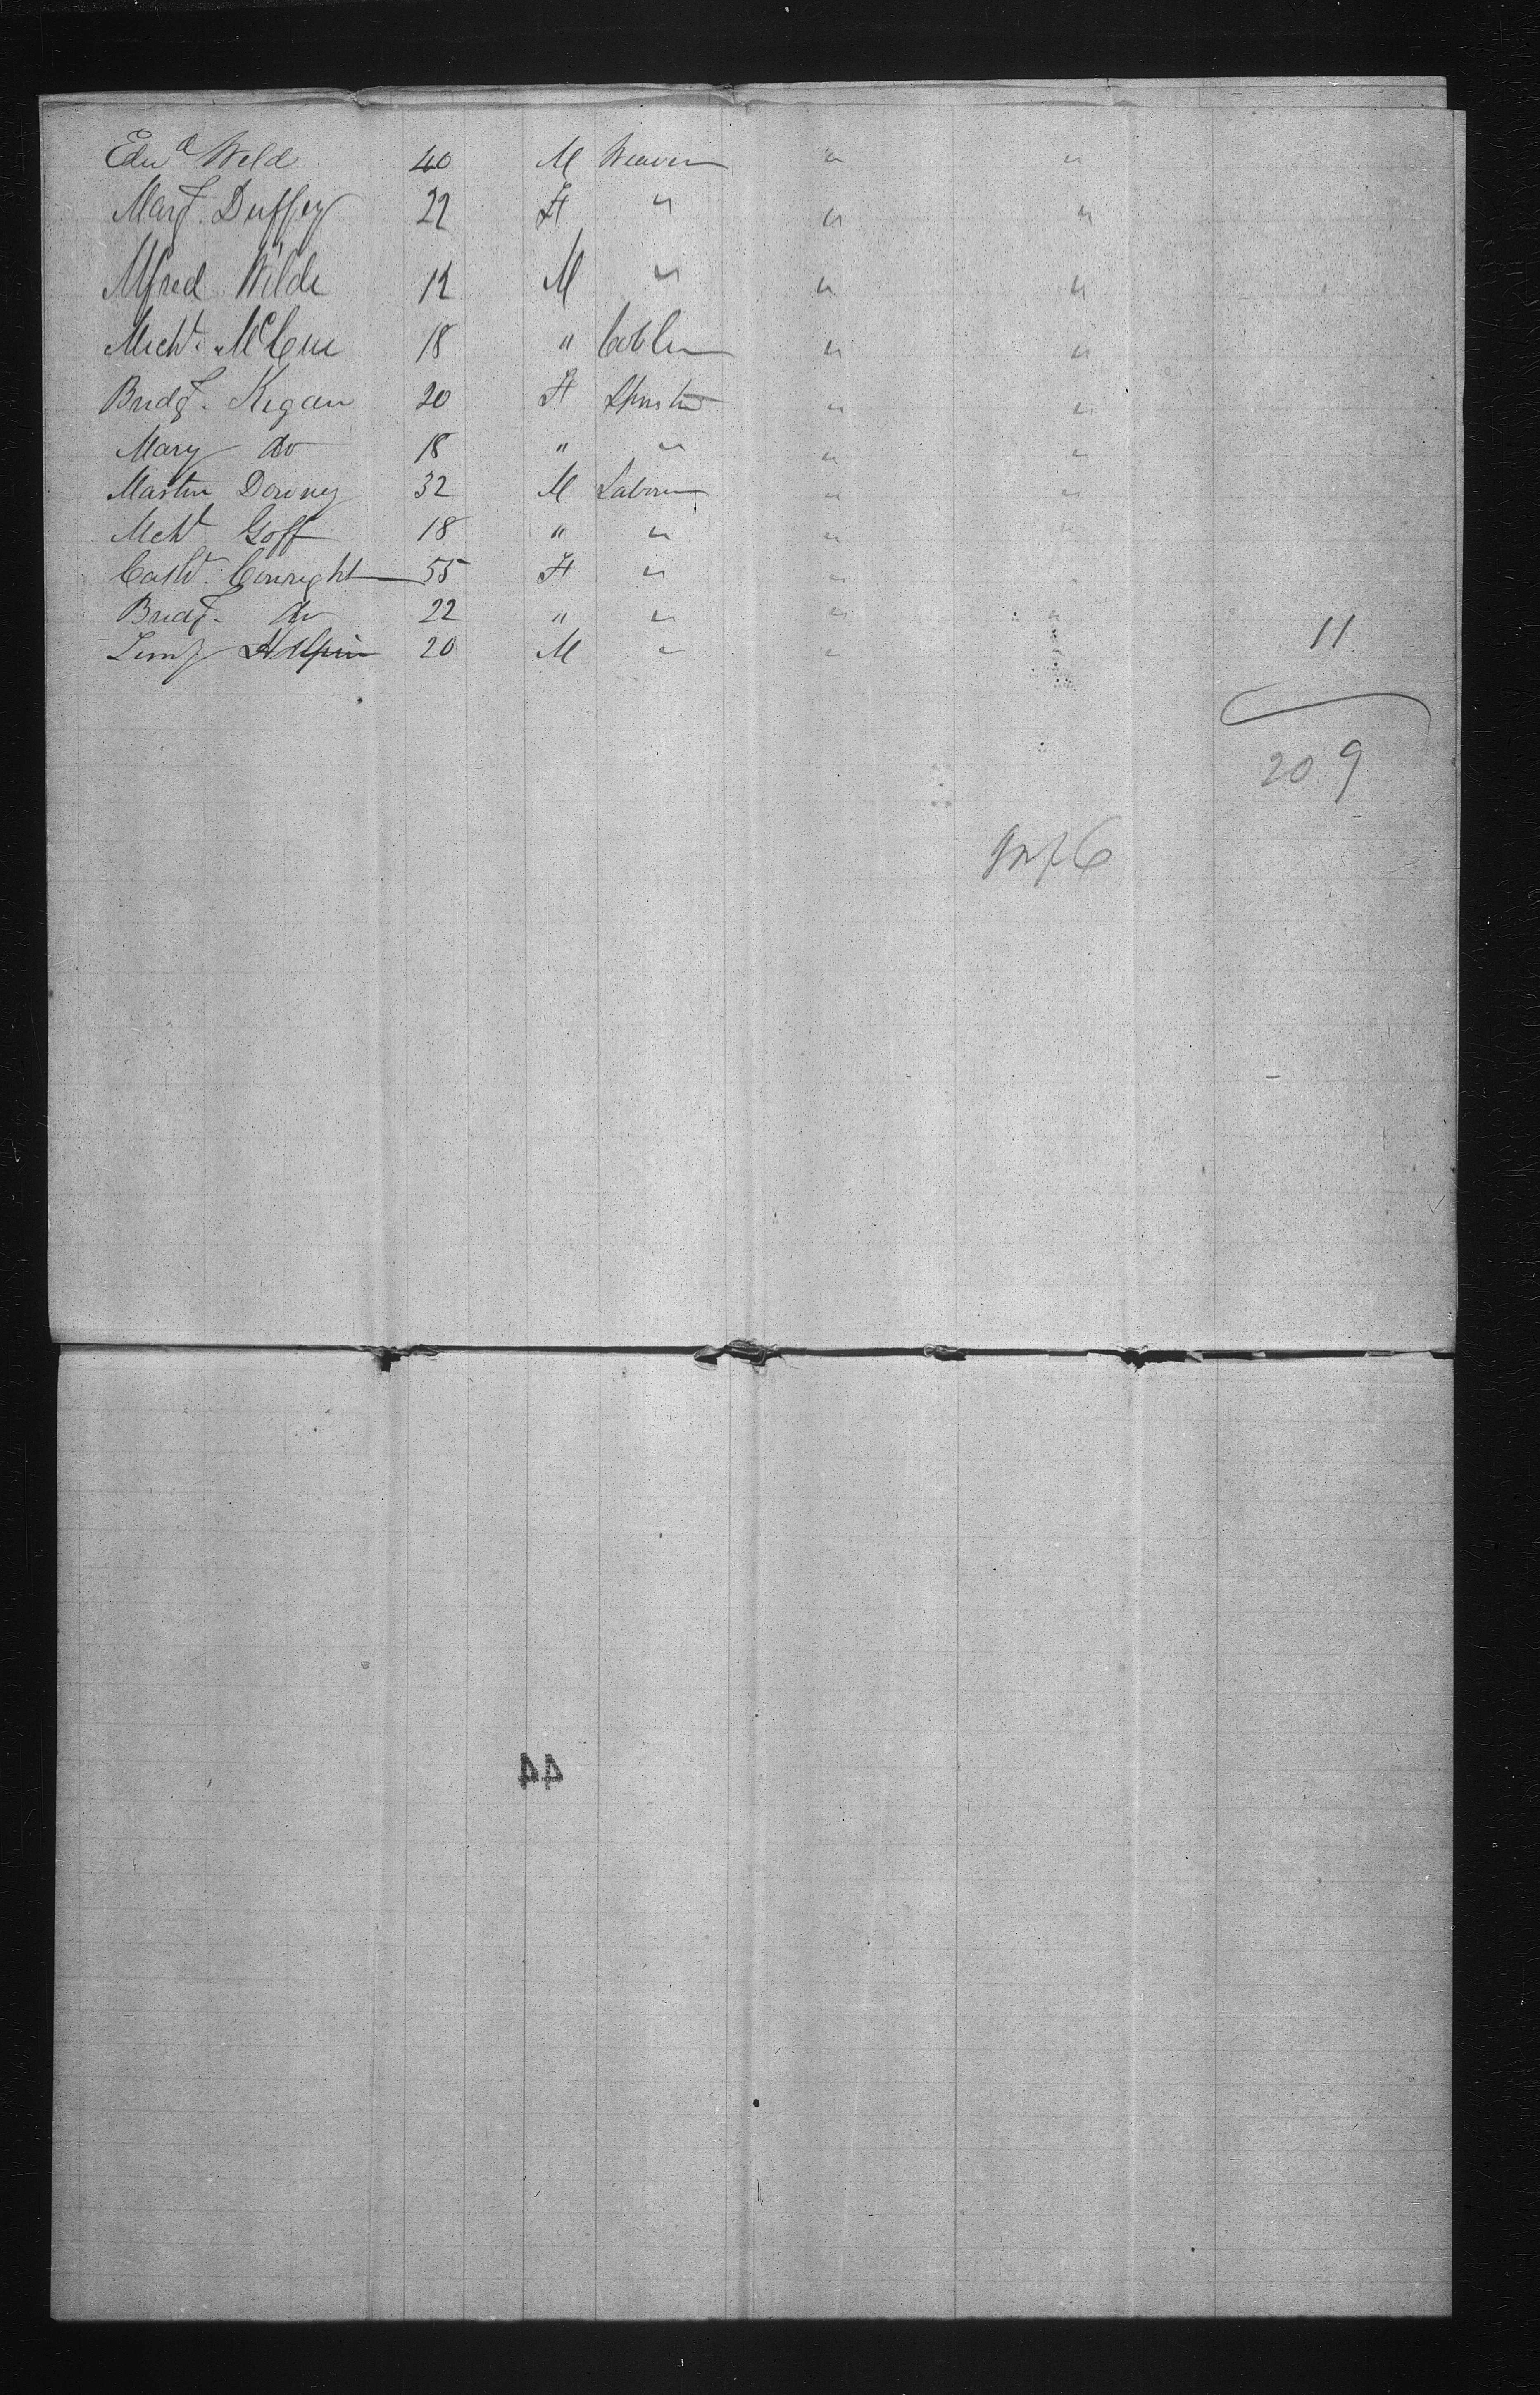 Edwd Weld 40 M Weaver " "
Margt. Duffey 22 F " " "
Alfred Wilde 12 M " " "
Michl. McCue 18 " Cobler " "
Bridgt. Kegan 20 F Spinster " "
Mary do 18 " " " "
Martin Downey 32 M Laborer " "
Mchl Goff 18 " " " "
Cathe. Conright 55 F " " "
Bridgt. do 22 " " " "
20 M " " 11
209
44